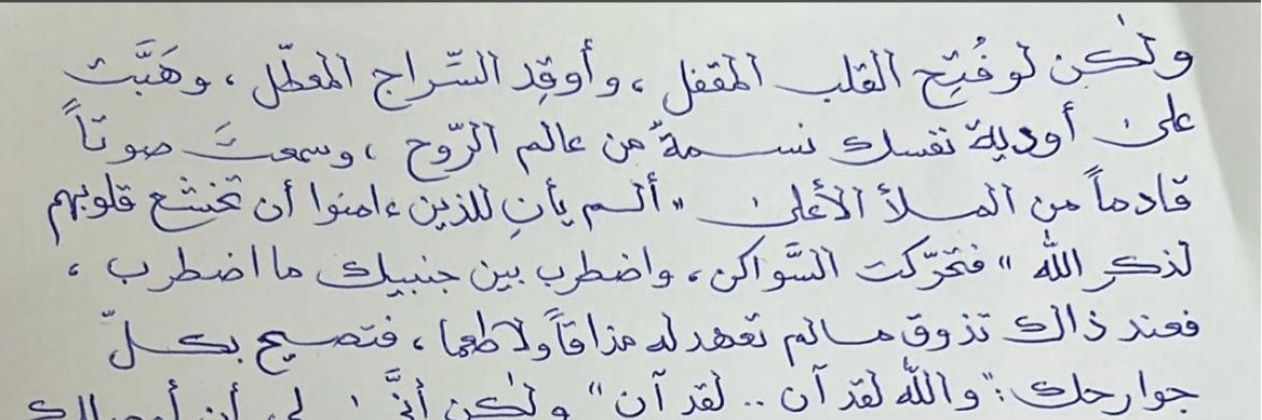 ولٰكن لو فُتِح القلب المقفل ، وأوقِد السِّراج المعطّل ، وهَبَّت
على أودية نفسك نسمةٌ من عالم الرّوح ، وسمعتَ صوتاً
قادماً من الملأ الأعلى "ألم يأنِ للذين ءامنوا أن تخشع قلوبهم
لذكر الله" فتحرّكت السَّواكن ، واضطرب بين جنبيك ما اضطرب ،
فعند ذاك تذوق مالم تعهد له مذاقاً ولا طعما ، فتصيح بكلّ
جوارحك : "والله لقد آن .. لقد آن" ولٰكن أنَّى لي أن